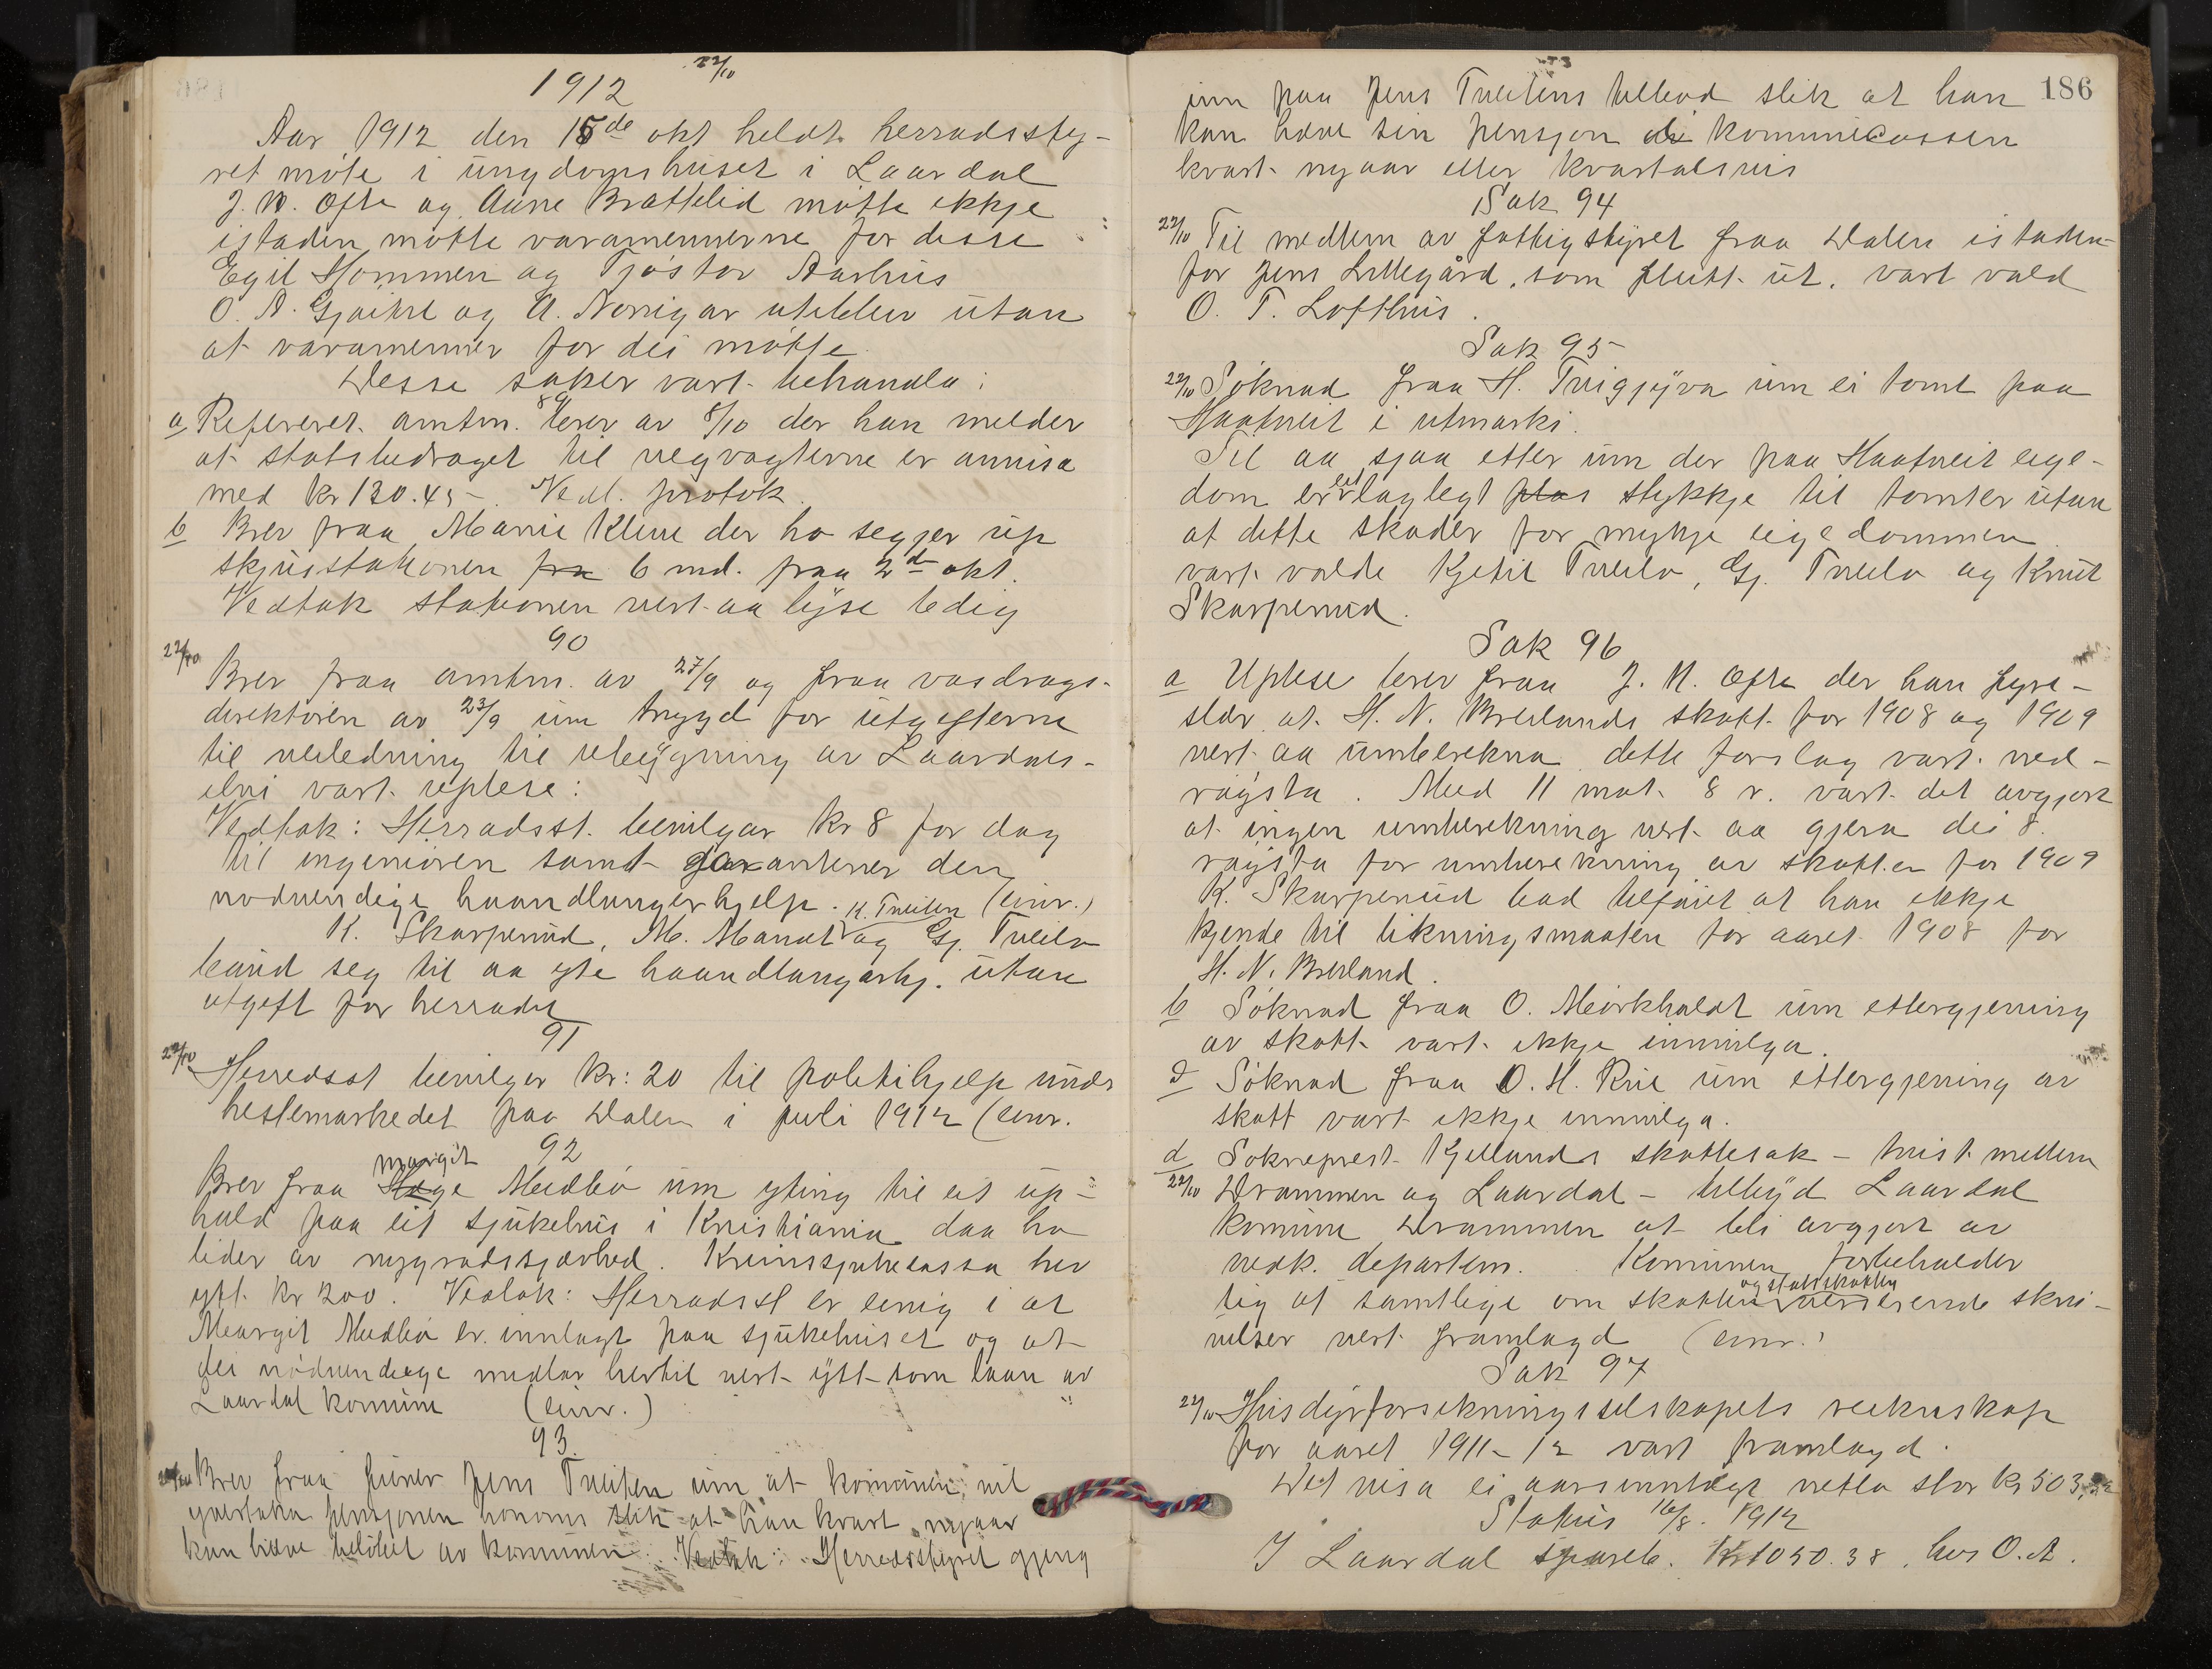 1912 22/10
Aar 1912 den 15de okt heldt herradssty-
ret møte i ungdomshuset i Laardal
J. N. Ofte og Aane Brattelid møtte ikkje
istaden møtte varamennerne for desse
Egil Hommen og Tjøstov Aarhus
O. A. Gjøitil og A. Norigar utebleiv utan
at varamenner for dei møtte.
Desse saker vart behandla:
89
a Referert amtm. brev av 8/10 der han melder
at statsbidraget til vegvogterne er anvisa
med kr 130.45. Vedl. protok.
b Brev fraa Marie Klevi der ho segjer up
skjusstationen fra 6 md. fraa 2den okt.
Vedtak stationen vert aa lyse ledig
90
22/10 Brev fraa amtm. av 27/9 og fraa vasdrags-
direktøren av 23/9 um trygd for utgifterne
til veiledning til utbyggning av Laardals-
elvi vart uplese:
Vedtak: Herradsst. bevilgar kr 8 for dag
til ingeniøren samt garanterer den
nødvendige haandlangerhjelp. (einr.)
K. Skarperud, M. Mandt K. Tveiten og Gj. Tveito
baud seg til aa yte haandlangarhj. utan
utgift for herradet
91
22/10 Herredsst bevilger kr: 20 til politihjelp under
hestemarkedet paa Dalen i juli 1912 (einr.
92
Brev fraa Hege Margit Midbø um yting til eit up-
hald paa eit sjukehus i Kristiania daa ho
lider av nygradssjærhed. Krinssjukekassa hev
ytt kr 200. Vedtak: Herradsst er einig i at
Margit Midbø er innlagt paa sjukehuset og at
dei nødvendige midlar hertil vert ytt som laan av
Laardal komune (einr.)
93.
22/10 Brev fraa furer Jens Tveiten um at komunen vil
yvertaka pensjonen honoms slik at han kvart nyaar
kan hæve beløbet av komunen. Vedtak: Herredsstyret gjeng
186
inn paa Jens Tveitens tilbod slik at han
kan hæve sin pensjon av kommunecassen
kvart nyaar eller kvartalsvis
Sak 94
22/10 Til medlem av fattigstyret fraa Dalen istaden
for Jens Lillegård, som flutt ut, vart vald
O. T. Lofthus.
Sak 95
22/10 Søknad fraa H. Tveigjyva um ei tomt paa
Haatveit i utmarki.
Til aa sjaa etter um der paa Haatveit eige-
dom er eit laglegt plas stykkje til tomter utan
at dette skader for mykje eigedommen
vart valde Kjetil Tveito, Gj. Tveito og Knut
Skarperud.
Sak 96
a Uplese brev fraa J. N. Ofte der han fyre-
slær at H. N. Breilands skatt for 1908 og 1909
vert aa umberekna dette forslag vart ned-
røysta. Med 11 mot 8 r. vart det avgjort
at ingen umberekning vert aa gjera dei 8
røysta for umberekning av skatten for 1909
K. Skarperud bad tilføiet at han ikkje
kjende til likningsmaaten for aaret 1908 for
H. N. Breiland.
b Søknad fraa O. Mørkhaldt um ettergjeving
av skatt vart ikkje innvilga.
c Søknad fraa O. H. Rui um ettergjeving av
skatt vart ikkje innvilga.
d Sokneprest Kjellands skattesak - tvist mellem
22/10 Drammen og Laardal - tilbyd Laardal
komune Drammen at bli avgjort av
vedk. departem. Komunen forbeholder
sig at samtlige om skatten og statsskatten verserende skri-
velser vert framlagd (einr.)
Sak 97
22/10 Husdyrforsikringsselskapets reikneskap
for aaret 1911-12 vart framlagd.
Det visa ei aarsinntægt netto stor kr 503,
Status 16/8. 1912
I Laardal spareb. Kr 1050.38. hos O. A.